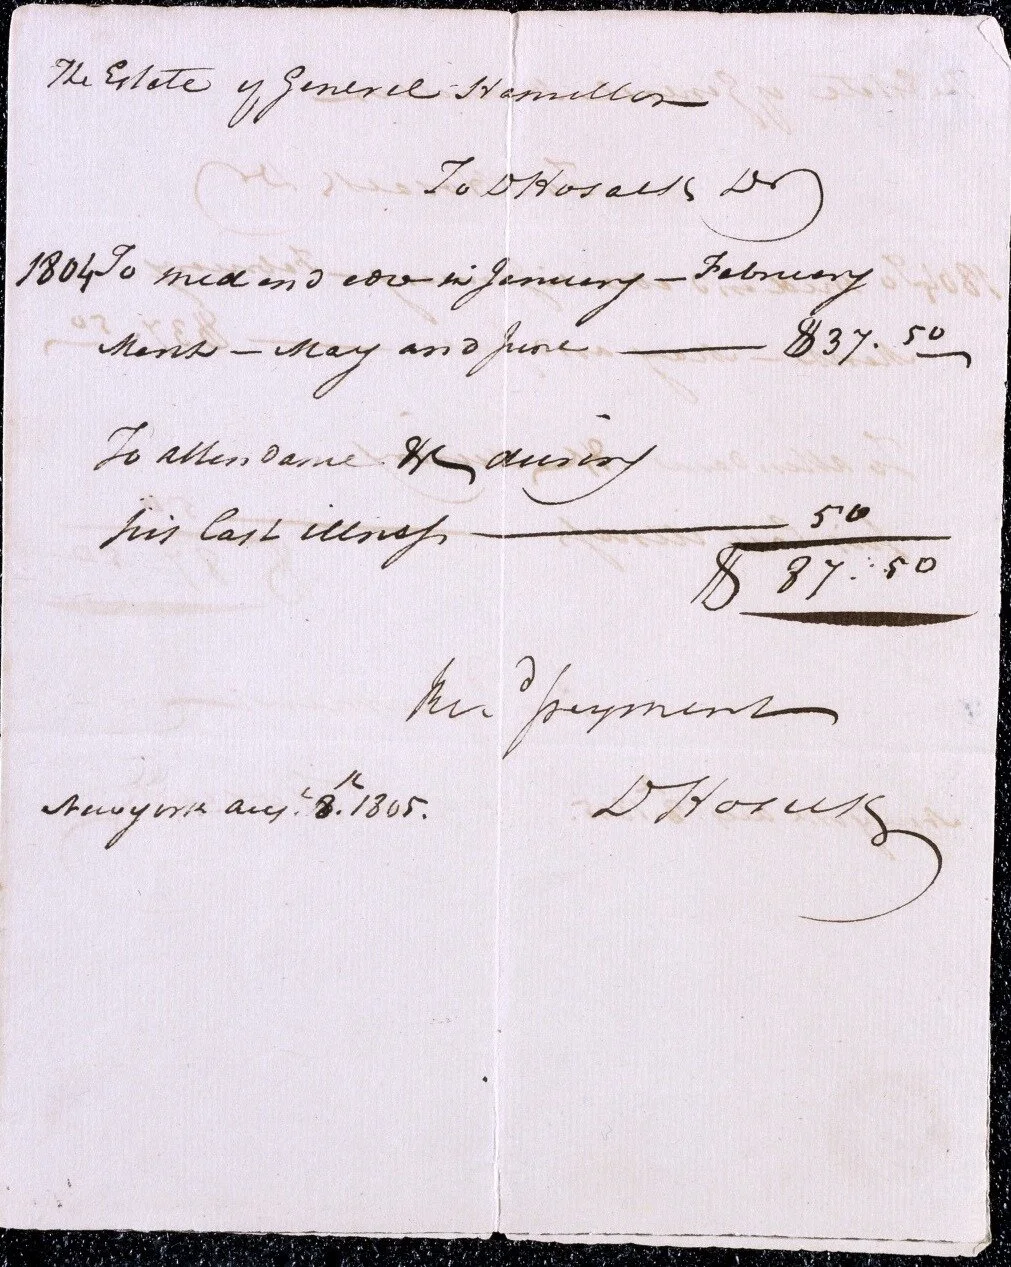 The Estate of General Hamilton
To D Hosack Dr
1804 To med and adv in January – February
March – May and June — $37. 50
To attendance &c during
his last illness — 50
$ 87. 50
Rec.d payment
New york Aug.t 8.th 1805. D Hosack